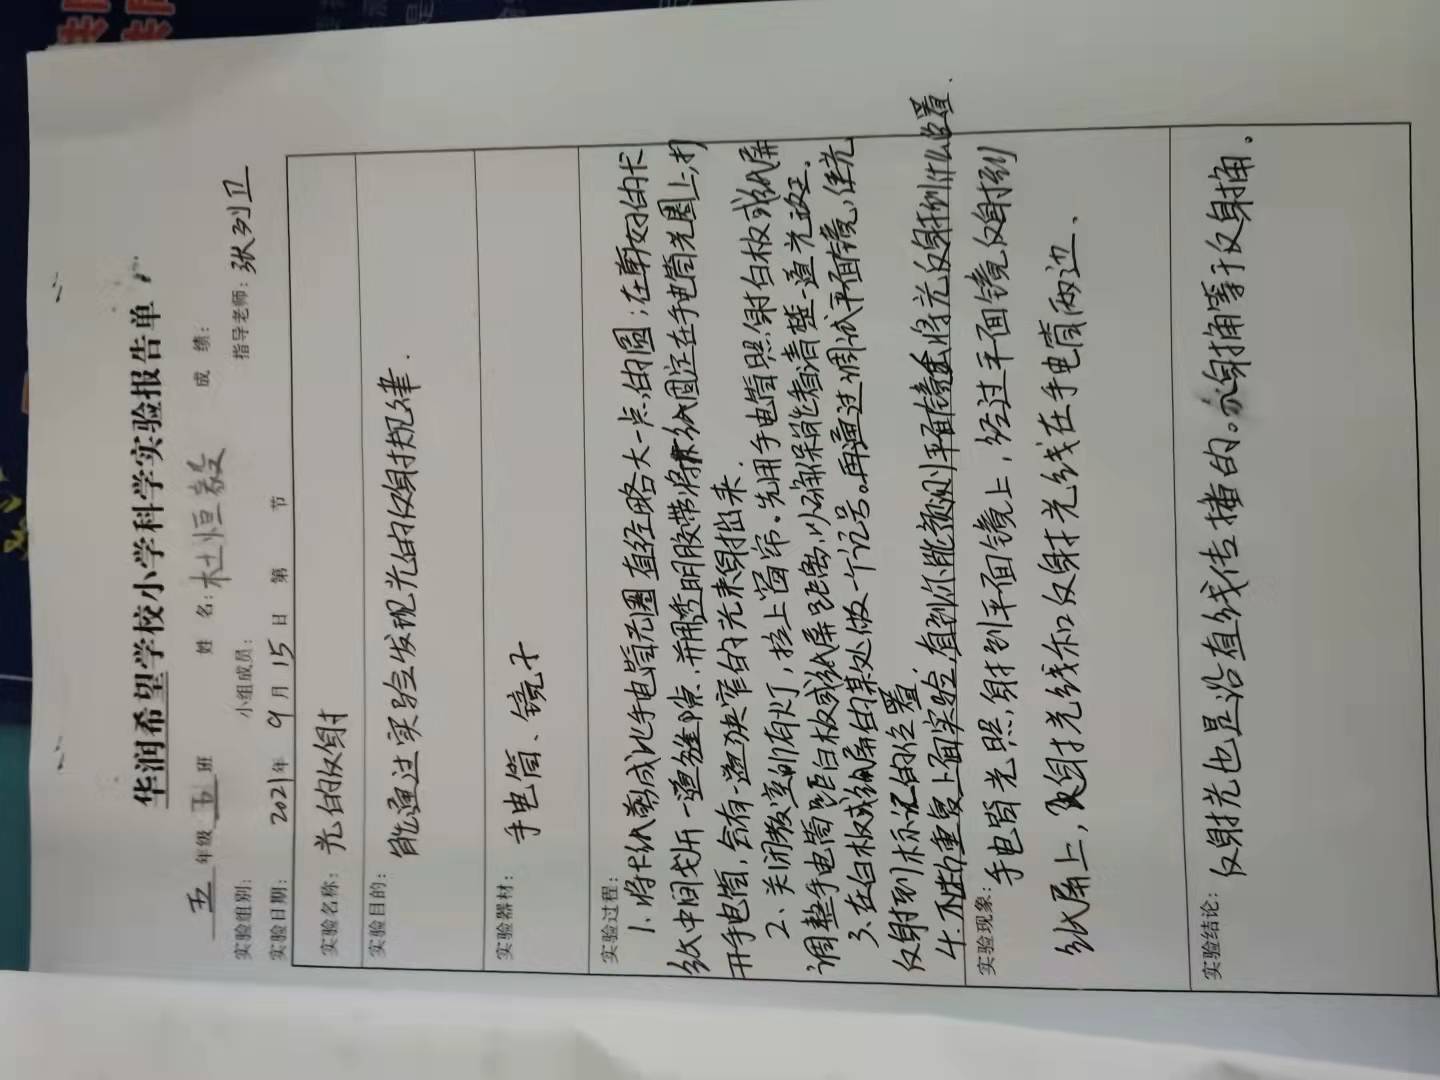 华润希望学校小学科学实验报告单
五 年级 五 班 姓 名: 杜恒毅 成 绩:
实验组别: 小组成员: 指导老师: 张列卫
实验日期: 2021年 9月 15日 第 节
实验名称: 光的反射
实验目的:
能通过实验发现光的反射规律.
实验器材:
手电筒、镜子
实验过程:
1.将卡纸剪成比手电筒光圈直径略大一点的圆;在剪好的卡
纸中间戈斤一道缝隙,并用透明胶带将卡纸固定在手电筒光圈上,打
开手电筒,会有一道狭窄的光束射出来.
2、关闭教室所有灯,拉上窗帘.先用手电筒照射白板或纸屏
调整手电筒距白板或纸屏距离,以确保能看清楚一道光效工.
3、在白板或纸屏的某处做一个记号。再通过调试平面镜,使光
反射到标记的位置
4.不断重复上面实验,直到你能预测平面镜会将光反射到什么位置.
实验现象:
手电筒光照射到平面镜上,经过平面镜反射到
纸屏上,入射光线和反射光线在手电筒两边.
实验结论:
反射光也是沿直线传播的。入射角等于反射角。